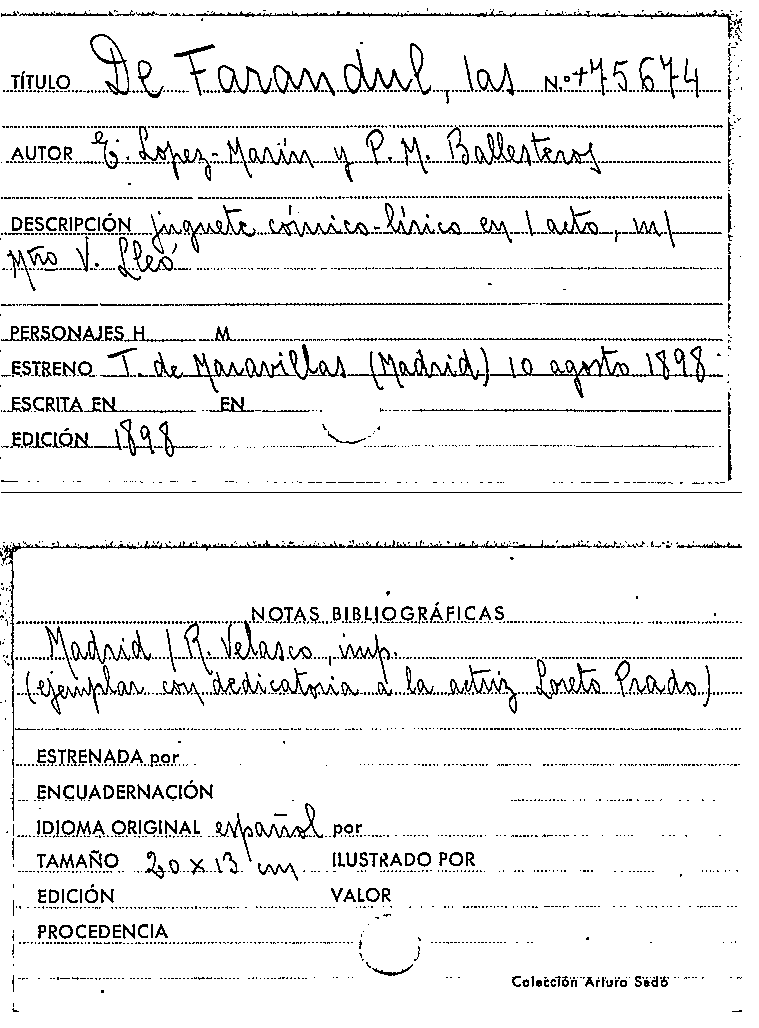 TÍTULO De Farandul, las N.º +75674
AUTOR E. Lopez-Marín y P. M. Ballesteros
DESCRIPCIÓN juguete cómico-lírico en 1 acto, m/
Mtro V. Lleó
PERSONAJES H. M.
ESTRENO T. de Maravillas (Madrid) 10 agosto 1898
ESCRITA EN EN
EDICIÓN 1898
NOTAS BIBLIOGRÁFICAS
Madrid / R. Velasco, imp.
(ejemplar con dedicatoria a la actriz Loreto Prado)
ESTRENADA por
ENCUADERNACIÓN
IDIOMA ORIGINAL español por
TAMAÑO 20 x 13 cm ILUSTRADO POR
EDICIÓN VALOR
PROCEDENCIA
Colección Arturo Sedó